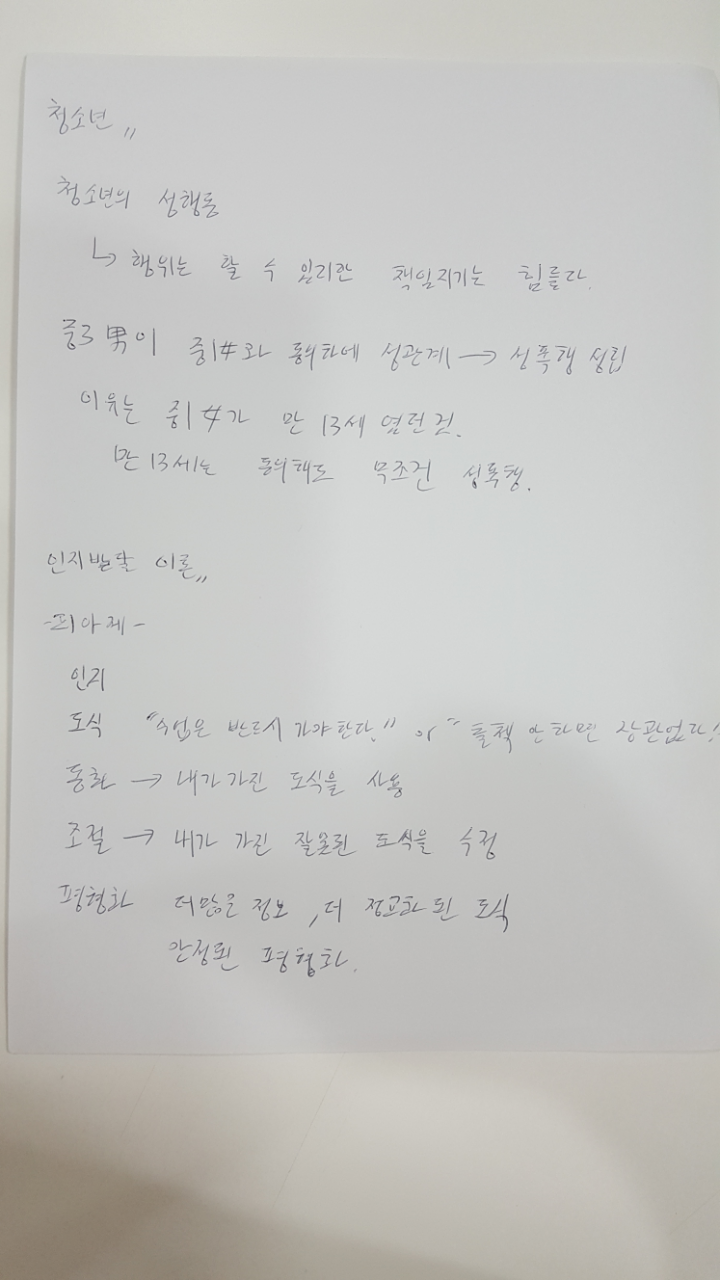 청소년 〃
청소년의 성행동
↳ 행위는 할 수 있지만 책임지기는 힘들다.
중3 男이 중1 女와 동의하에 성관계 → 성폭행 성립
이유는 중1 女가 만 13세 였던 것.
만 13세는 동의해도 무조건 성폭행.
인지발달 이론〃
-피아제-
인지
도식 "수업은 반드시 가야한다." or "출첵 안하면 상관없다!
동화 → 내가 가진 도식을 사용
조절 → 내가 가진 잘못된 도식을 수정
평형화 더많은 정보, 더 정교화된 도식
안정된 평형화.